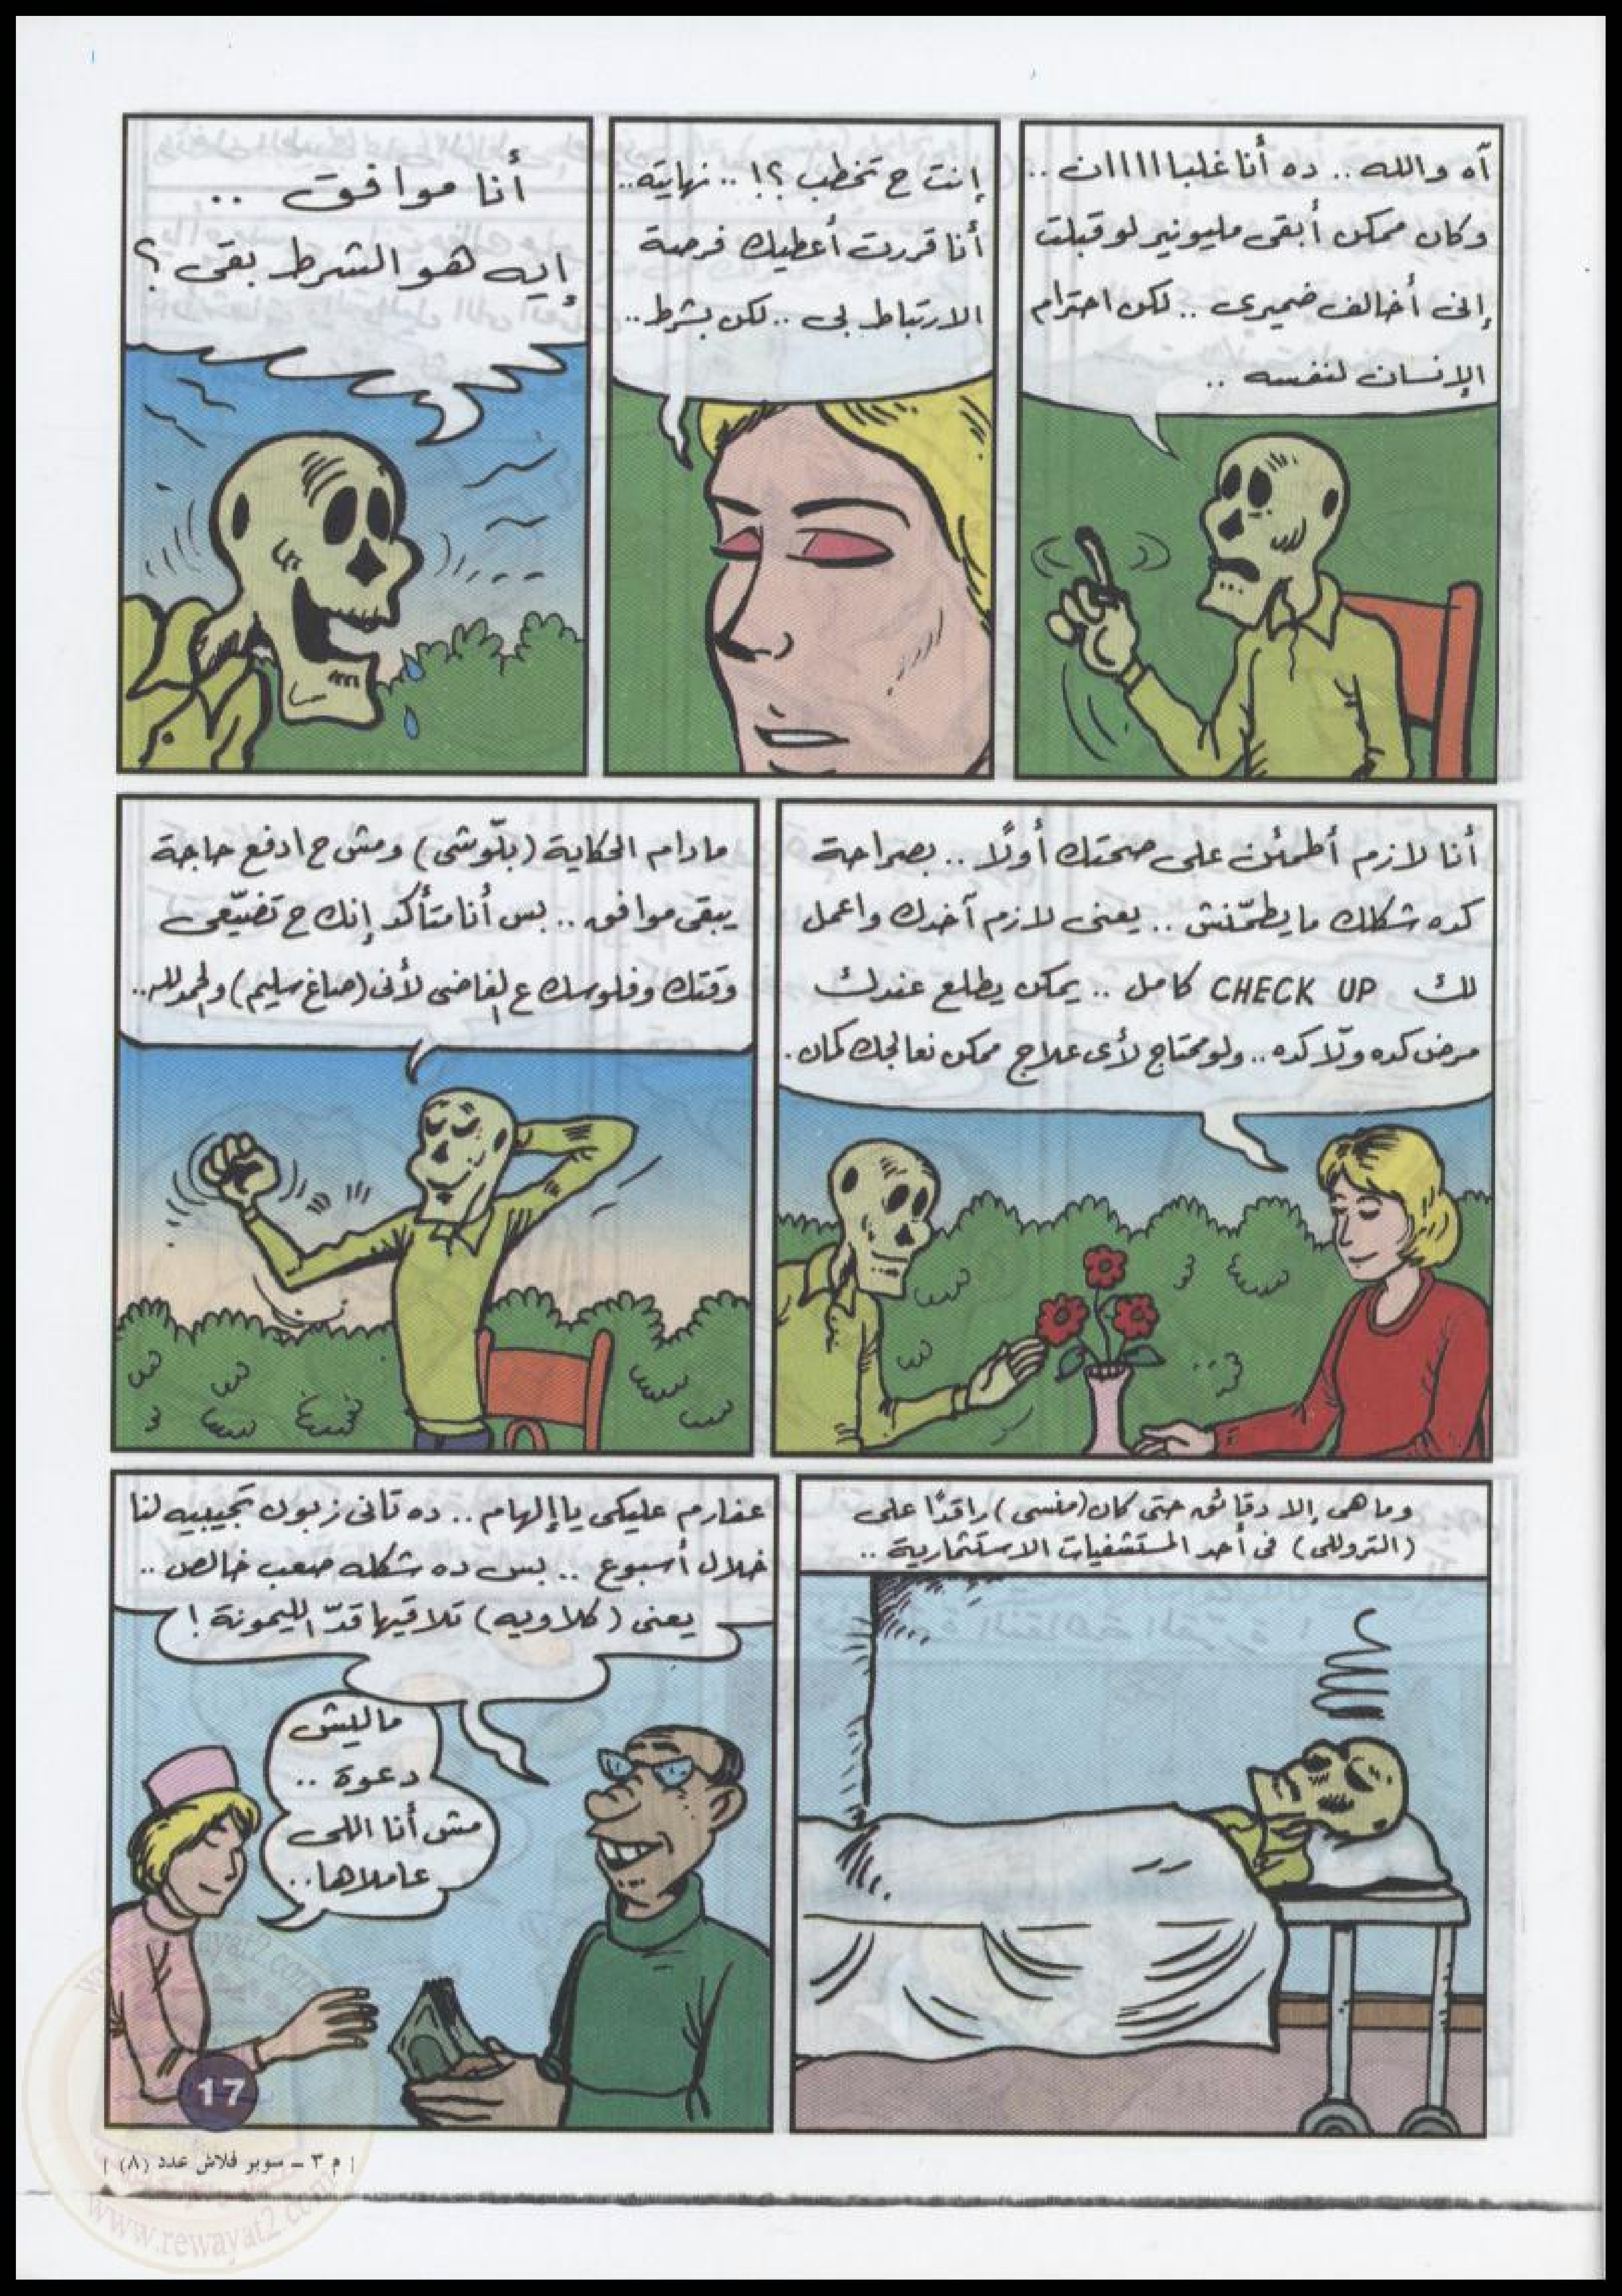 آه والله .. ده أنا غلبااااان ..
وكان ممكن أبقى مليونير لو قبلت
إنى أخالف ضميرى .. لكن احترام
الإنسان لنفسه ..
إنت ح تخطب ؟! .. نهايته ..
أنا قررت أعطيك فرصة
الارتباط بى .. لكن بشرط ..
أنا موافق ..
إيه هو الشرط بقى ؟
أنا لازم أطمئن على صحتك أولًا .. بصراحة
كده شكلك ما يطمّنش .. يعنى لازم آخدك واعمل
لك CHECK UP كامل .. يمكن يطلع عندك
مرض كده ولّا كده .. ولو محتاج لأى علاج ممكن نعالجك كمان .
مادام الحكاية (بلّوشى) ومش ح ادفع حاجة
يبقى موافق .. بس أنا متأكد إنك ح تضيّعى
وقتك وفلوسك ع الفاضى لأنى (صاغ سليم) والحمد لله ..
وما هى إلا دقائق حتى كان (منسى) راقدًا على
(التروللى) فى أحد المستشفيات الاستثمارية ..
عفارم عليكى يا إلهام .. ده تانى زبون تجيبيه لنا
خلال أسبوع .. بس ده شكله صعب خالص ..
يعنى (كلاويه) تلاقيها قدّ الليمونة !
ماليش
دعوة ..
مش أنا اللى
عاملاها ..
17
م ٣ – سوبر فلاش عدد (٨)
www.rewayat2.com